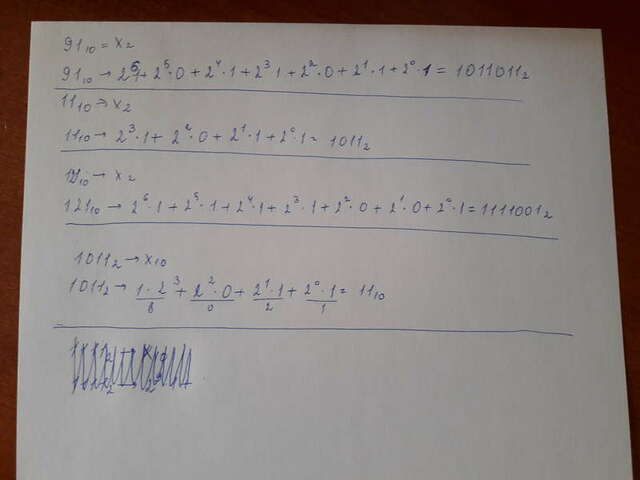 91₁₀ = x₂
91₁₀ → 2⁶·1 + 2⁵·0 + 2⁴·1 + 2³·1 + 2²·0 + 2¹·1 + 2⁰·1 = 1011011₂
11₁₀ → x₂
11₁₀ → 2³·1 + 2²·0 + 2¹·1 + 2⁰·1 = 1011₂
121₁₀ → x₂
121₁₀ → 2⁶·1 + 2⁵·1 + 2⁴·1 + 2³·1 + 2²·0 + 2¹·0 + 2⁰·1 = 1111001₂
1011₂ → x₁₀
1011₂ → 1·2³ + 2²·0 + 2¹·1 + 2⁰·1 = 11₁₀
8 0 2 1